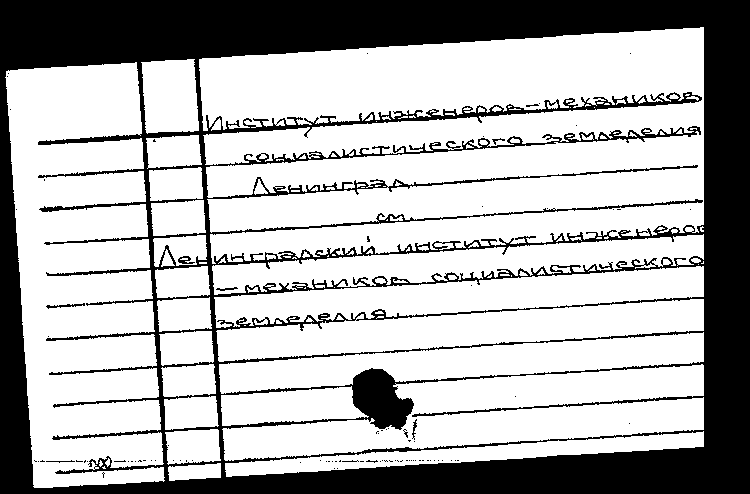 Институт инженеров-механиков
социалистического земледелия
Ленинград.
см.
Ленинградский институт инженеров
-механиков социалистического
земледелия.